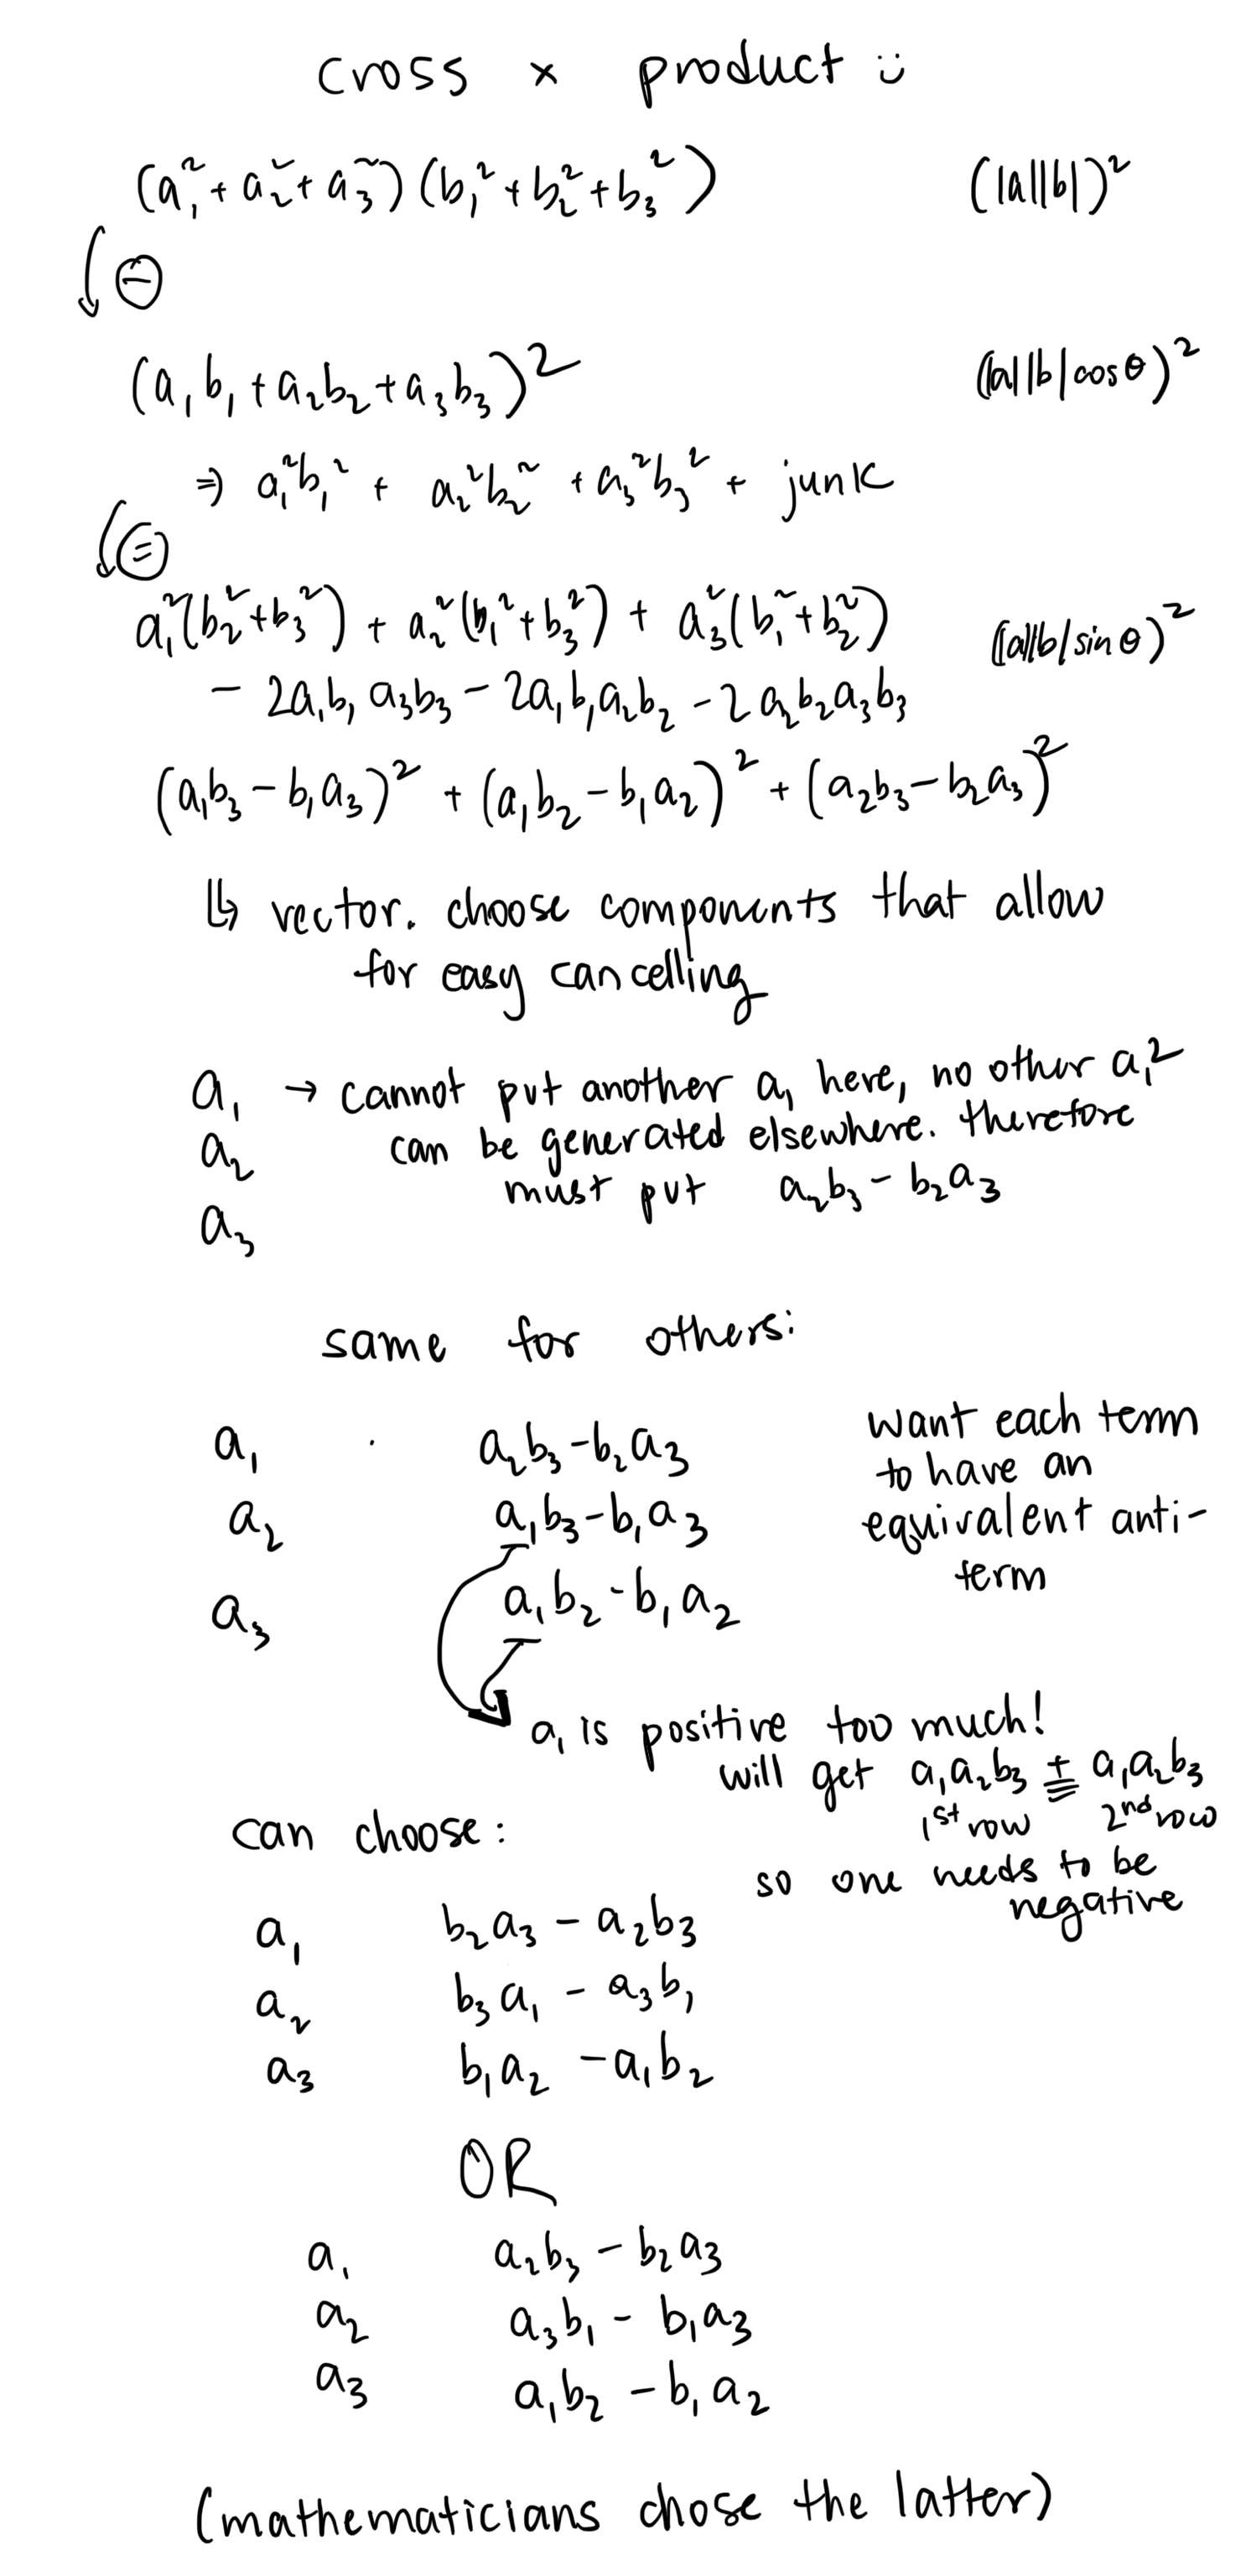 cross × product :)
(a₁² + a₂² + a₃²)(b₁² + b₂² + b₃²) (|a||b|)²
⊖
(a₁b₁ + a₂b₂ + a₃b₃)² (|a||b|cosθ)²
⇒ a₁²b₁² + a₂²b₂² + a₃²b₃² + junk
=
a₁²(b₂² + b₃²) + a₂²(b₁² + b₃²) + a₃²(b₁² + b₂²) (|a||b|sinθ)²
− 2a₁b₁a₃b₃ − 2a₁b₁a₂b₂ − 2a₂b₂a₃b₃
(a₁b₃ − b₁a₃)² + (a₁b₂ − b₁a₂)² + (a₂b₃ − b₂a₃)²
↳ vector. choose components that allow
for easy cancelling
a₁ → cannot put another a₁ here, no other a₁²
a₂ can be generated elsewhere. therefore
must put a₂b₃ − b₂a₃
a₃
same for others:
a₁ a₂b₃ − b₂a₃
a₂ a₁b₃ − b₁a₃
a₃ a₁b₂ − b₁a₂
want each term
to have an
equivalent anti-
term
a₁ is positive too much!
will get a₁a₂b₃ ± a₁a₂b₃
1st row 2nd row
so one needs to be
negative
can choose:
a₁ b₂a₃ − a₂b₃
a₂ b₃a₁ − a₃b₁
a₃ b₁a₂ − a₁b₂
OR
a₁ a₂b₃ − b₂a₃
a₂ a₃b₁ − b₁a₃
a₃ a₁b₂ − b₁a₂
(mathematicians chose the latter)